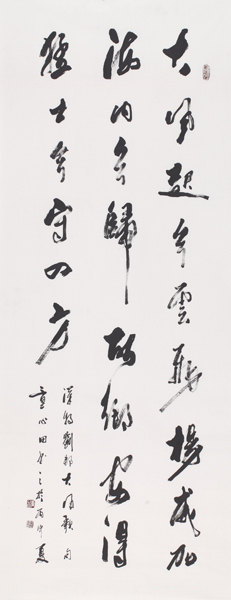 大風起兮雲飛揚威加
海内兮歸故鄉安得
猛士兮守四方
漢楊劉邦大風歌句
童心田書之於丙申夏